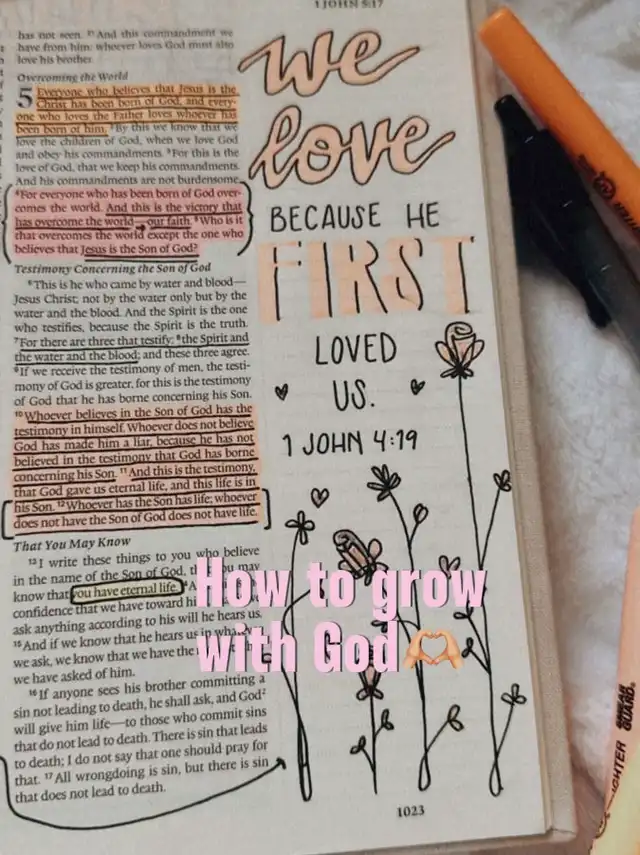 1 JOHN 5:17
has not seen. 21 And this commandment we
have from him: whoever loves God must also
love his brother.
Overcoming the World
5 Everyone who believes that Jesus is the
Christ has been born of God, and every-
one who loves the Father loves whoever has
been born of him. 2 By this we know that we
love the children of God, when we love God
and obey his commandments. 3 For this is the
love of God, that we keep his commandments.
And his commandments are not burdensome.
4 For everyone who has been born of God over-
comes the world. And this is the victory that
has overcome the world—our faith. 5 Who is it
that overcomes the world except the one who
believes that Jesus is the Son of God?
Testimony Concerning the Son of God
6 This is he who came by water and blood—
Jesus Christ; not by the water only but by the
water and the blood. And the Spirit is the one
who testifies, because the Spirit is the truth.
7 For there are three that testify: 8 the Spirit and
the water and the blood; and these three agree.
9 If we receive the testimony of men, the testi-
mony of God is greater, for this is the testimony
of God that he has borne concerning his Son.
10 Whoever believes in the Son of God has the
testimony in himself. Whoever does not believe
God has made him a liar, because he has not
believed in the testimony that God has borne
concerning his Son. 11 And this is the testimony,
that God gave us eternal life, and this life is in
his Son. 12 Whoever has the Son has life; whoever
does not have the Son of God does not have life.
That You May Know
13 I write these things to you who believe
in the name of the Son of God, you may
know that you have eternal life.
confidence that we have toward
ask anything according to his will he hears us.
15 And if we know that he hears us in
we ask, we know that we have the
we have asked of him.
16 If anyone sees his brother committing a
sin not leading to death, he shall ask, and God
will give him life—to those who commit sins
that do not lead to death. There is sin that leads
to death; I do not say that one should pray for
that. 17 All wrongdoing is sin, but there is sin
that does not lead to death.
we
love
BECAUSE HE
FIRST
LOVED
US.
1 JOHN 4:19
How to grow
with God🫶🏼
1023
SMEAR
GUARD